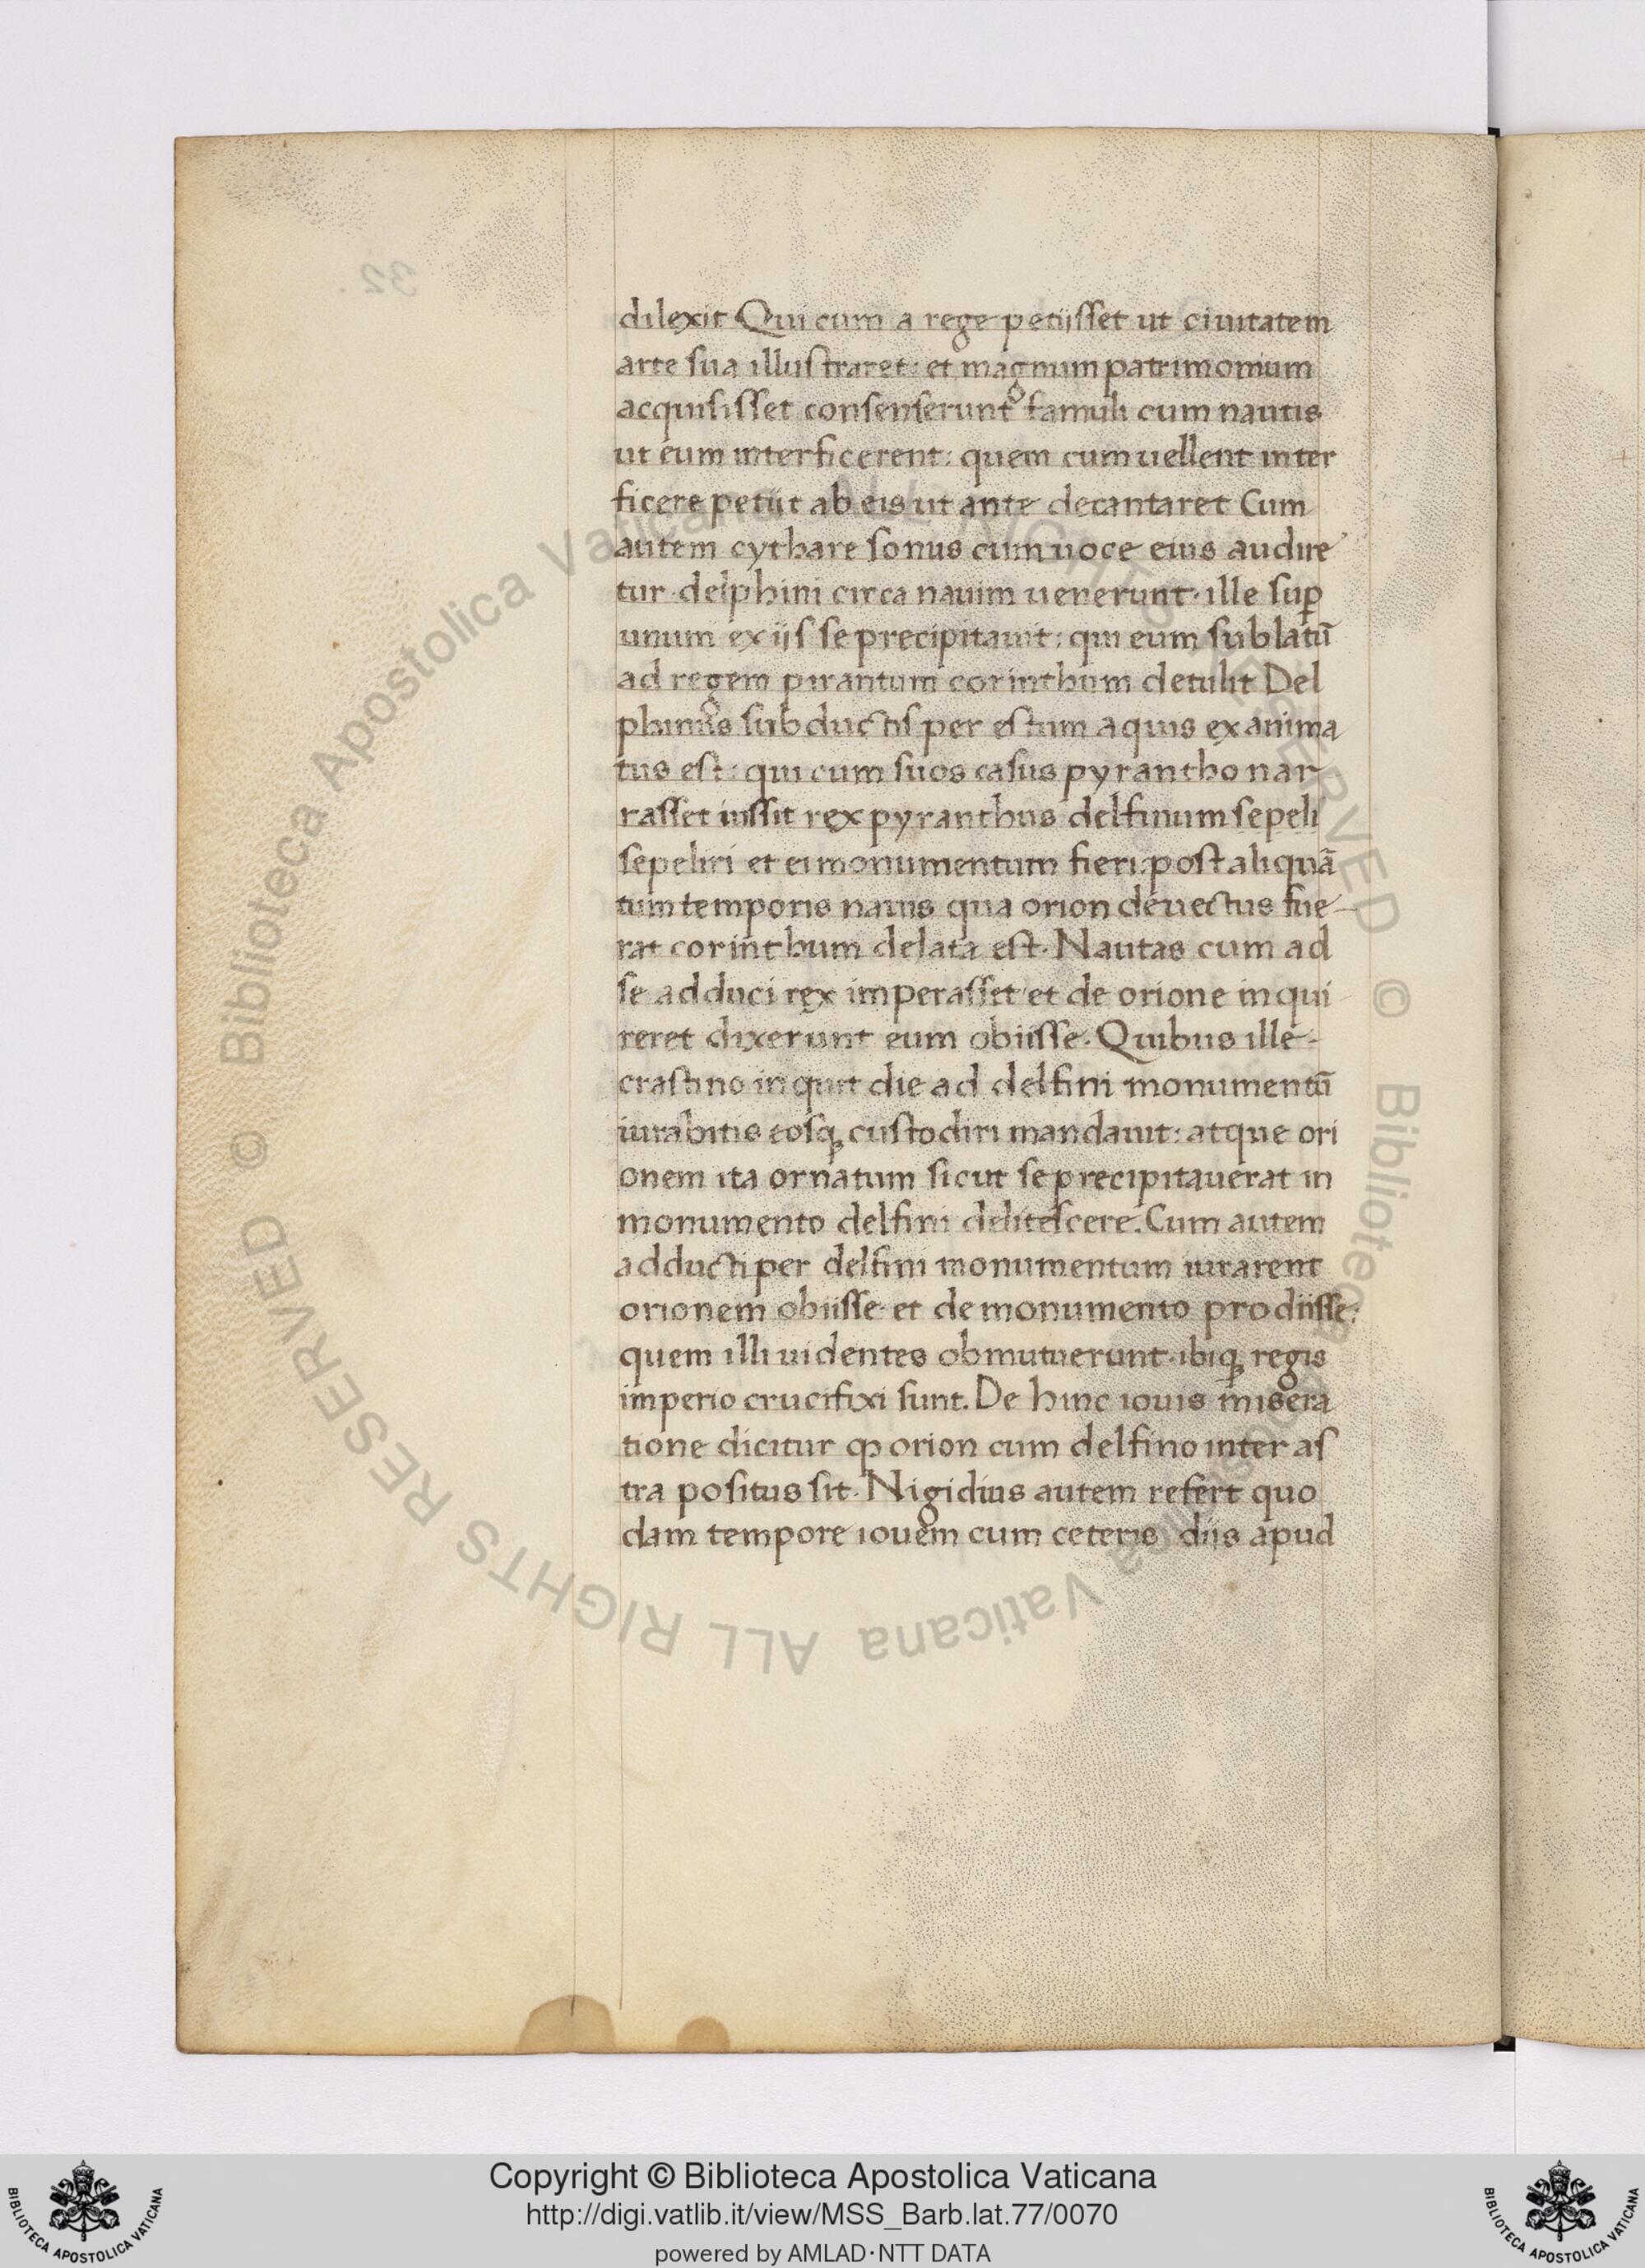 32.
dilexit Qui cum a rege petijsset ut ciuitatem
arte sua illustraret: et magnum patrimonium
acquisisset consenserunt famuli cum nautis
ut eum interficerent: quem cum uellent inter
ficere petijt ab eis ut ante decantaret Cum
autem cythare sonus cum uoce eius audire
tur · delphini circa nauim uenerunt · ille suꝑ
unum ex ijs se precipitauit: qui eum sublatū
ad regem pirantum corinthum detulit Del
phinus subductis per estum aquis exanima
tus est: qui cum suos casus pyrantho nar
rasset iussit rex pyranthus delfinum sepeli
sepeliri et ei monumentum fieri: post aliquā
tum temporis nauis qua orion deuectus fue-
rat corinthum delata est. Nautas cum ad
se adduci rex imperasset et de orione inqui
reret dixerunt eum obiisse. Quibus ille-
crastino inquit die ad delfini monumentū
iurabitis eosqꝫ custodiri mandauit: atque ori
onem ita ornatum sicut se precipitauerat in
monumento delfini delitescere. Cum autem
adducti per delfini monumentum iurarent
orionem obiisse et de monumento prodiisse:
quem illi uidentes obmutuerunt · ibiqꝫ regis
imperio crucifixi sunt. De hinc iouis misera
tione dicitur ꝙ orion cum delfino inter as
tra positus sit. Nigidius autem refert quo
dam tempore iouem cum ceteris diis apud
© Biblioteca Apostolica Vaticana ALL RIGHTS RESERVED © Biblioteca Apostolica Vaticana ALL RIGHTS RESERVED
BIBLIOTECA APOSTOLICA VATICANA
Copyright © Biblioteca Apostolica Vaticana
http://digi.vatlib.it/view/MSS_Barb.lat.77/0070
powered by AMLAD·NTT DATA
BIBLIOTECA APOSTOLICA VATICANA